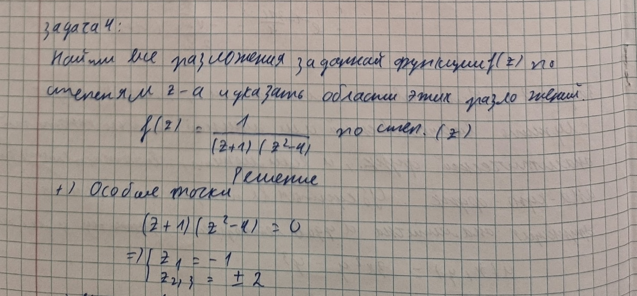 Задача 4:
Найти все разложения заданной функции f(z) по
степеням z-a и указать области этих разложений.
f(z) = 1 / ((z+1)(z²-4)) по степ. (z)
Решение
+) Особые точки
(z+1)(z²-4) = 0
=> { z₁ = -1
z₂,₃ = ±2